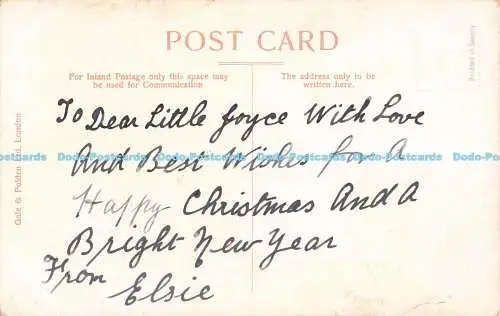 POST CARD
For Inland Postage only this space may
be used for Communication
The address only to be
written here.
To Dear Little Joyce With Love
And Best Wishes for A
Happy Christmas And A
Bright New Year
From
Elsie
Gale & Polden Ltd. London
Printed in Saxony
Dodo-Postcards Dodo-Postcards Dodo-Postcards Dodo-Postcards Dodo-Postcards